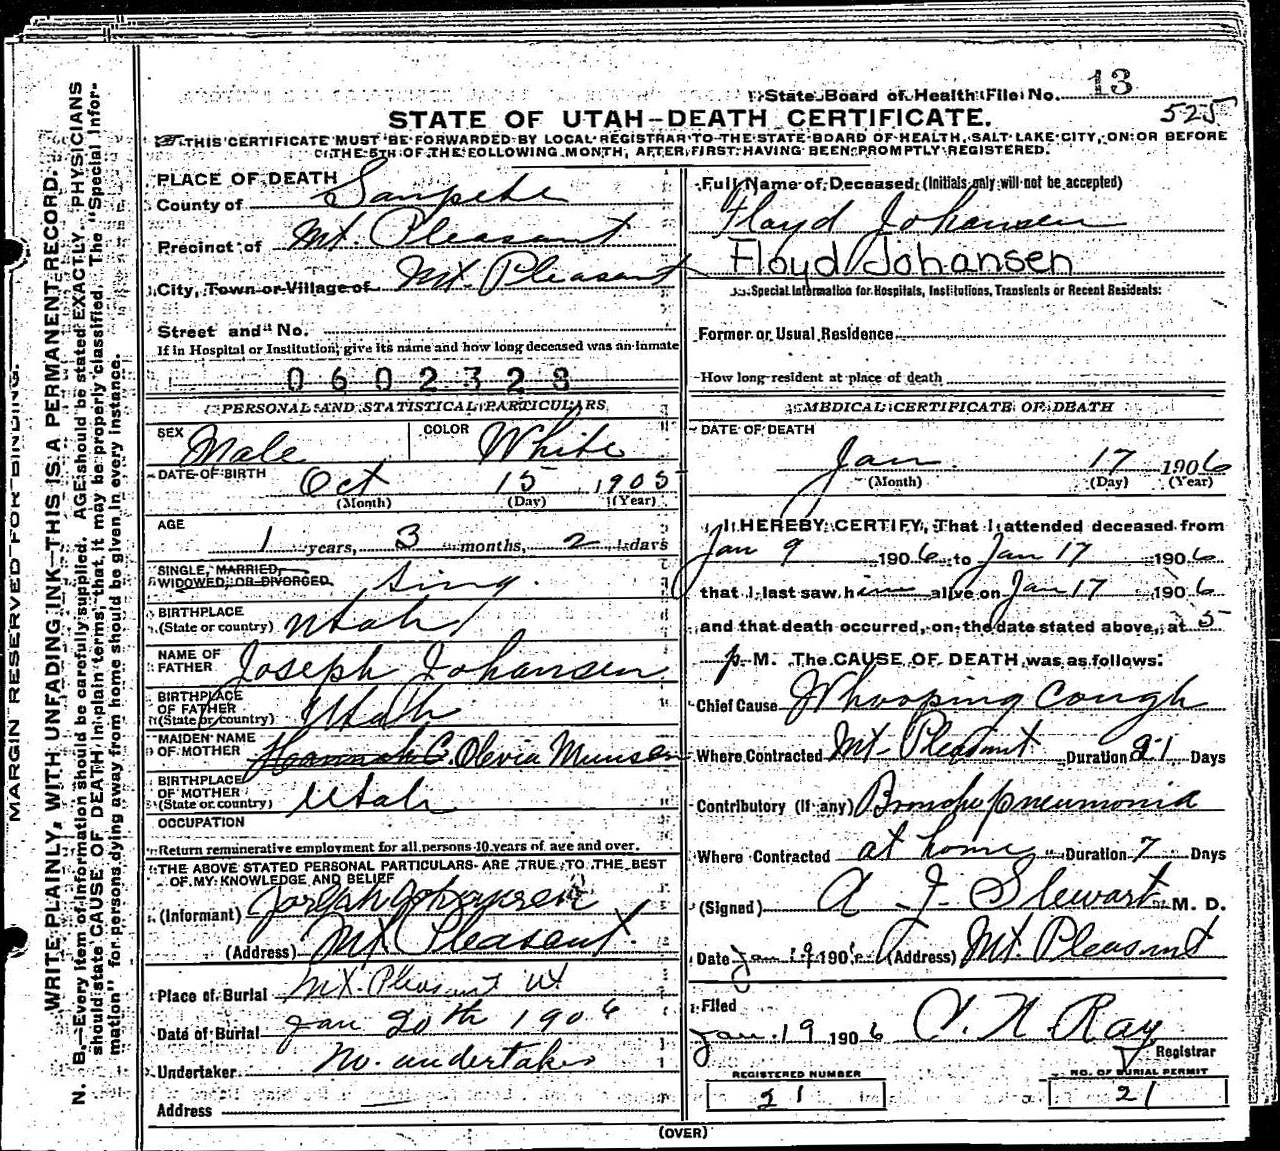 State Board of Health File No. 13
525
STATE OF UTAH–DEATH CERTIFICATE.
THIS CERTIFICATE MUST BE FORWARDED BY LOCAL REGISTRAR TO THE STATE BOARD OF HEALTH, SALT LAKE CITY, ON OR BEFORE
THE 5TH OF THE FOLLOWING MONTH, AFTER FIRST HAVING BEEN PROMPTLY REGISTERED.
MARGIN RESERVED FOR BINDING.
WRITE PLAINLY, WITH UNFADING INK—THIS IS A PERMANENT RECORD.
N. B.—Every item of information should be carefully supplied. AGE should be stated EXACTLY. PHYSICIANS
should state CAUSE OF DEATH in plain terms, that it may be properly classified. The "Special Infor-
mation" for persons dying away from home should be given in every instance.
PLACE OF DEATH
County of Sanpete
Precinct of Mt. Pleasant
City, Town or Village of Mt. Pleasant
Street and No.
If in Hospital or Institution, give its name and how long deceased was an inmate
0602328
PERSONAL AND STATISTICAL PARTICULARS
SEX Male COLOR White
DATE OF BIRTH Oct 15 1905
(Month) (Day) (Year)
AGE
1 years, 3 months, 2 days
SINGLE, MARRIED,
WIDOWED, OR DIVORCED. Sing.
BIRTHPLACE
(State or country) Utah
NAME OF
FATHER Joseph Johansen
BIRTHPLACE
OF FATHER
(State or country) Utah
MAIDEN NAME
OF MOTHER Hannah C. Olevia Munsen
BIRTHPLACE
OF MOTHER
(State or country) Utah
OCCUPATION
Return remunerative employment for all persons 10 years of age and over.
THE ABOVE STATED PERSONAL PARTICULARS ARE TRUE TO THE BEST
OF MY KNOWLEDGE AND BELIEF
(Informant) Joseph Johansen
(Address) Mt Pleasant.
Place of Burial Mt. Pleasant Ut
Date of Burial Jan 20th 1906
Undertaker No. undertaker
Address
Full Name of Deceased (Initials only will not be accepted)
Floyd Johansen
Floyd Johansen
Special Information for Hospitals, Institutions, Transients or Recent Residents:
Former or Usual Residence
How long resident at place of death
MEDICAL CERTIFICATE OF DEATH
DATE OF DEATH
Jan. 17 1906
(Month) (Day) (Year)
I HEREBY CERTIFY, That I attended deceased from
Jan 9 1906 to Jan 17 1906
that I last saw him alive on Jan 17 1906
and that death occurred, on the date stated above, at 5
p. M. The CAUSE OF DEATH was as follows:
Chief Cause Whooping Cough
Where Contracted Mt. Pleasant Duration 21 Days
Contributory (if any) Broncho pneumonia
Where Contracted at home Duration 7 Days
(Signed) A J Stewart M. D.
Date Jan 19 190 (Address) Mt. Pleasant
Filed
Jan. 19 1906 C. N. Ray
Registrar
REGISTERED NUMBER
21
NO. OF BURIAL PERMIT
21
(OVER)